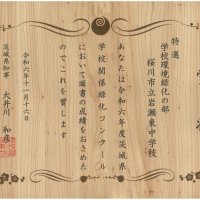 特選
学校環境緑化の部
桜川市立岩瀬東中学校
あなたは令和六年度茨城県
学校関係緑化コンクール
において頭書の成績をおさめた
のでこれを賞します
令和六年十一月十六日
茨城県知事 大井川和彦